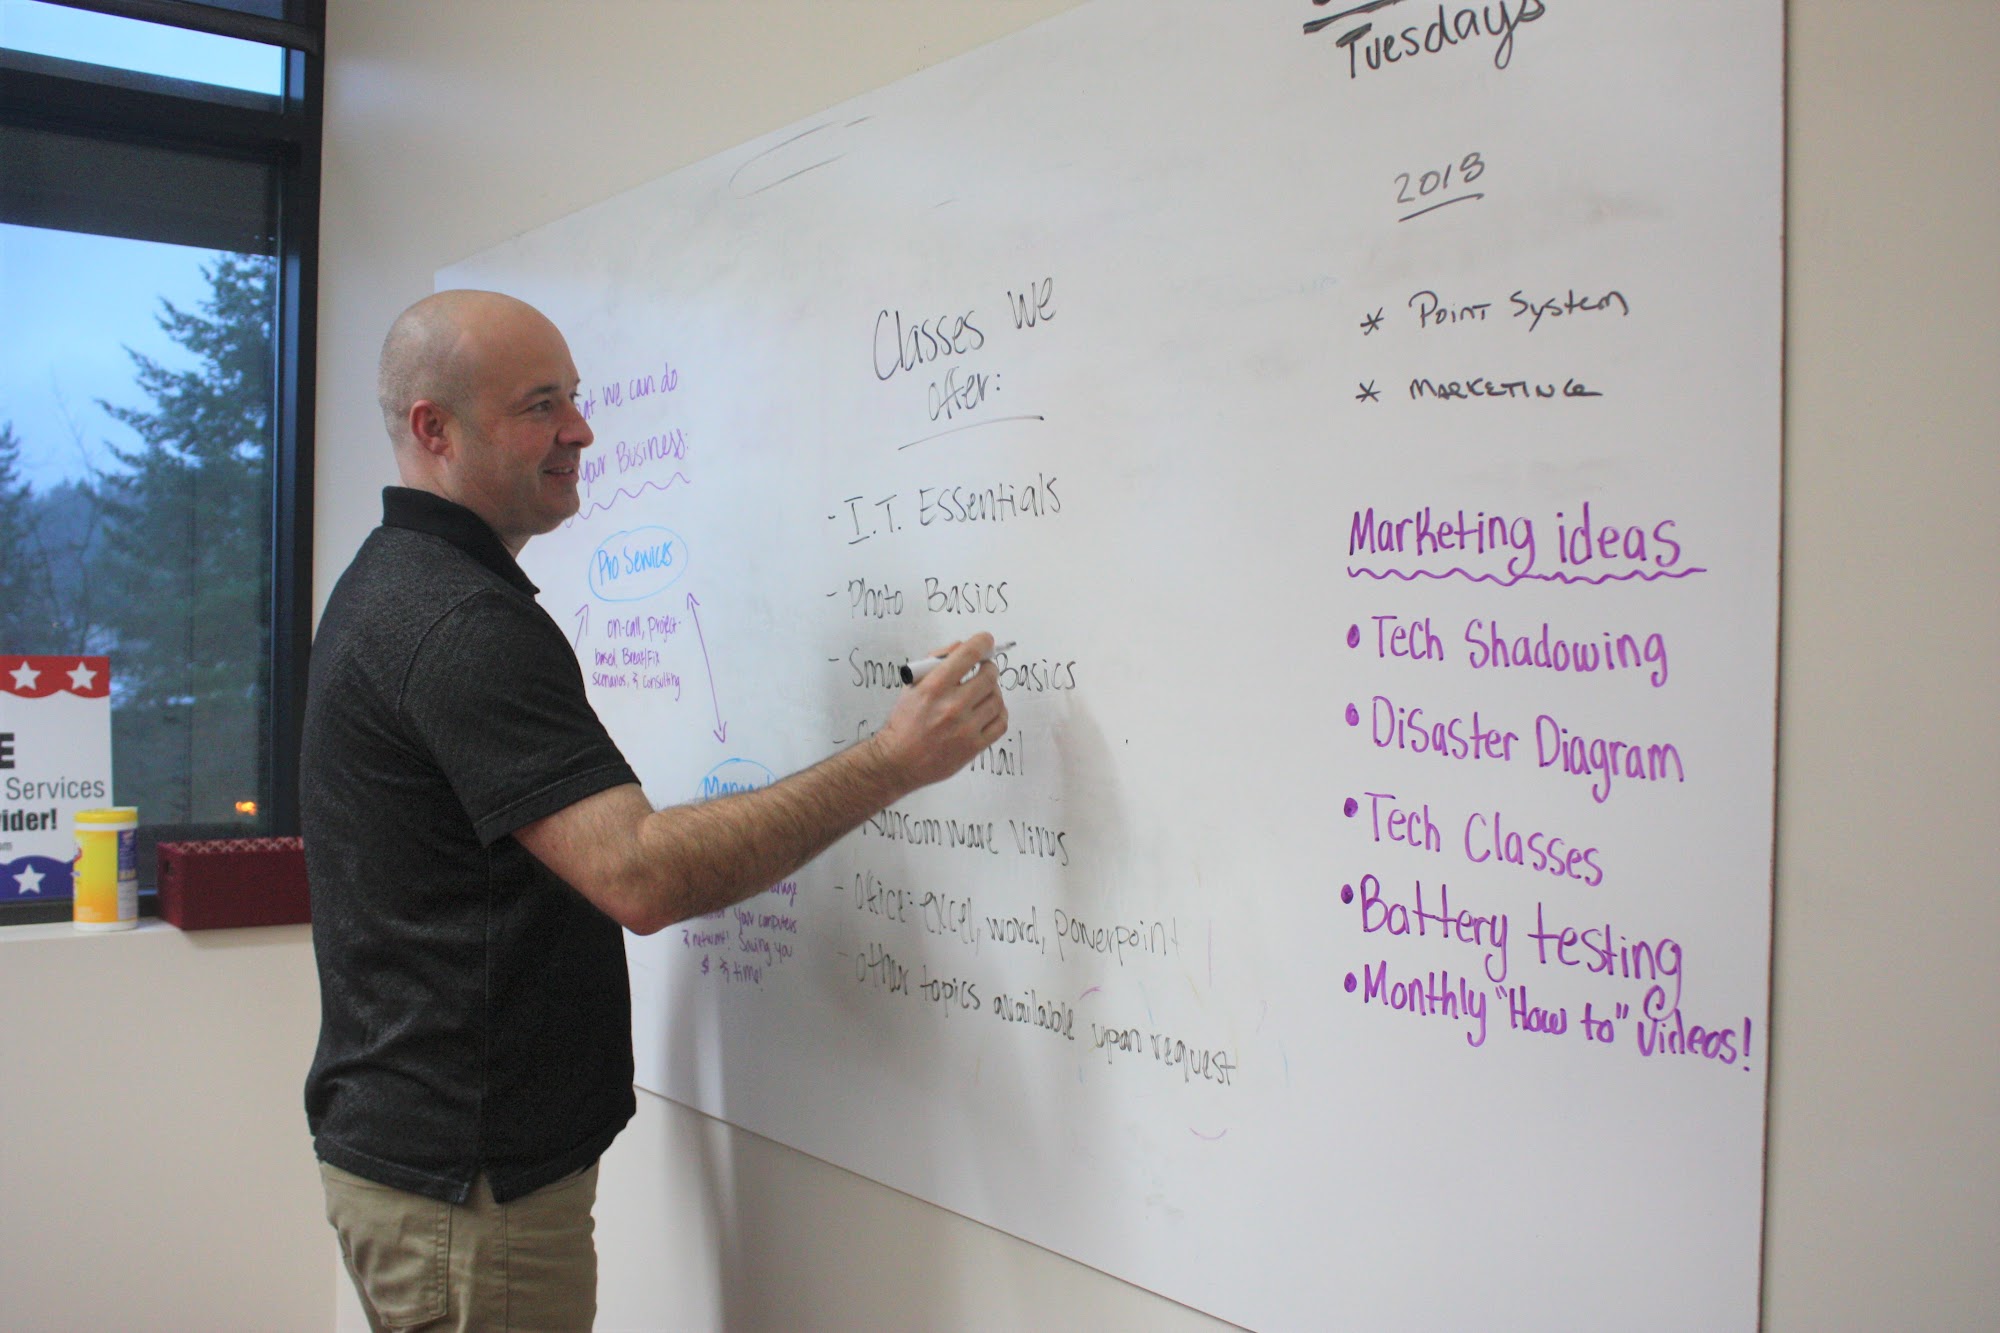 Tuesdays
2018
* POINT SYSTEM
* MARKETING
Marketing ideas
• Tech Shadowing
• Disaster Diagram
• Tech Classes
• Battery testing
• Monthly "How to" Videos!
Classes We
offer:
- I.T. Essentials
- Photo Basics
- Basics
-
Ransomware Virus
- Office: excel, word, powerpoint
- other topics available upon request
we can do
your Business:
Pro Services
on-call, Project-
based, Break/Fix
scenarios, & consulting
your computers
& network! Saving you
$ & time!
E
Services